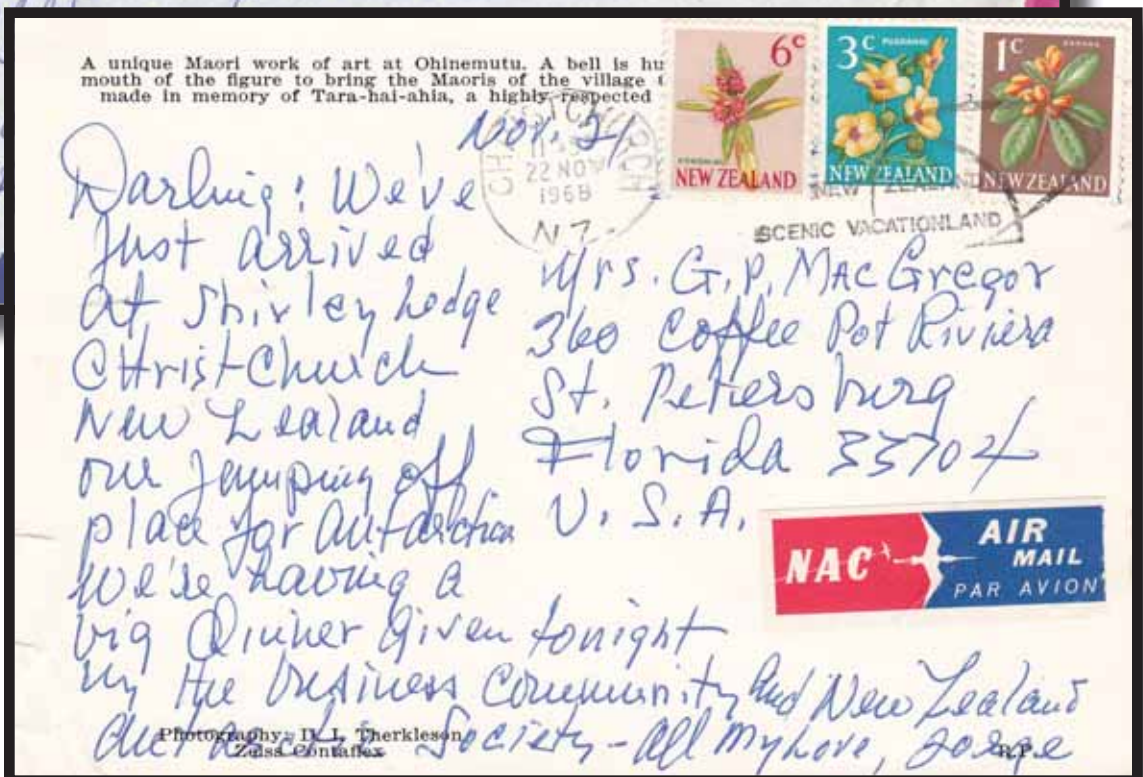 A unique Maori work of art at Ohinemutu. A bell is hu
mouth of the figure to bring the Maoris of the village
made in memory of Tara-hai-ahia, a highly respected
6c
NEW ZEALAND
3c PUARANGI
NEW ZEALAND
1c KARAKA
NEW ZEALAND
CHRISTCHURCH
22 NOV
1968
N.Z.
NEW ZEALAND
SCENIC VACATIONLAND
Nov. 21
Darling: We've
just arrived
at Shirley Lodge
Christchurch
New Zealand
our jumping off
place for Antarctica
We're having a
big Dinner given tonight
by the business Community and New Zealand
Society - All my love, George
Mrs. G.P. MacGregor
360 Coffee Pot Riviera
St. Petersburg
Florida 33704
U.S.A.
NAC
AIR
MAIL
PAR AVION
Photography: D. I. Therkleson
Zeiss Contaflex
R.P.